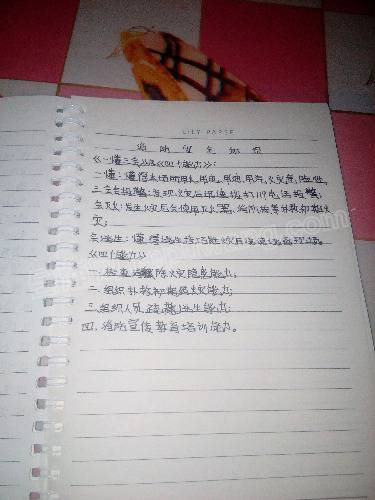 LILY PAPER
消防安全知识
《一懂三会》及《四个能力》:
一懂:懂得本场所用火、用电、用油、用气、火灾危险性
三会会报警:发现火灾后迅速拨打119电话报警
会灭火:发生火灾后会使用灭火器,
灾;
会逃生:懂得逃生技巧
《四个能力》
一、检查消除火灾隐患能力;
二、组织扑救初期火灾能力;
三、组织人员疏散逃生能力;
四、消防宣传教育培训能力。